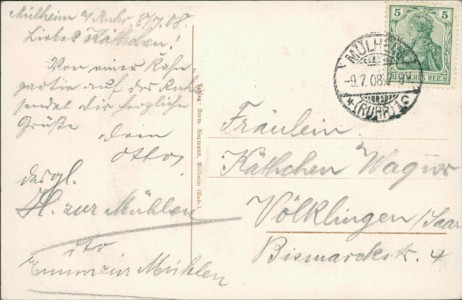 Mülheim a/Ruhr, 8/7.08.
Liebes Käthchen!
Von einer Kahn
partie auf der Ruhr
sendet dir herzliche
Grüße
dein
Otto
desgl.
H. zur Mühlen
dto
Emma zur Mühlen
Verlag: Herm. Baumann, Mülheim (Ruhr).
5 5
DEUTSCHES REICH
MÜLHEIM
-9.7.08.
*(RUHR)1c
Fräulein
Käthchen Wagner
Völklingen/Saar
Bismarckstr. 4